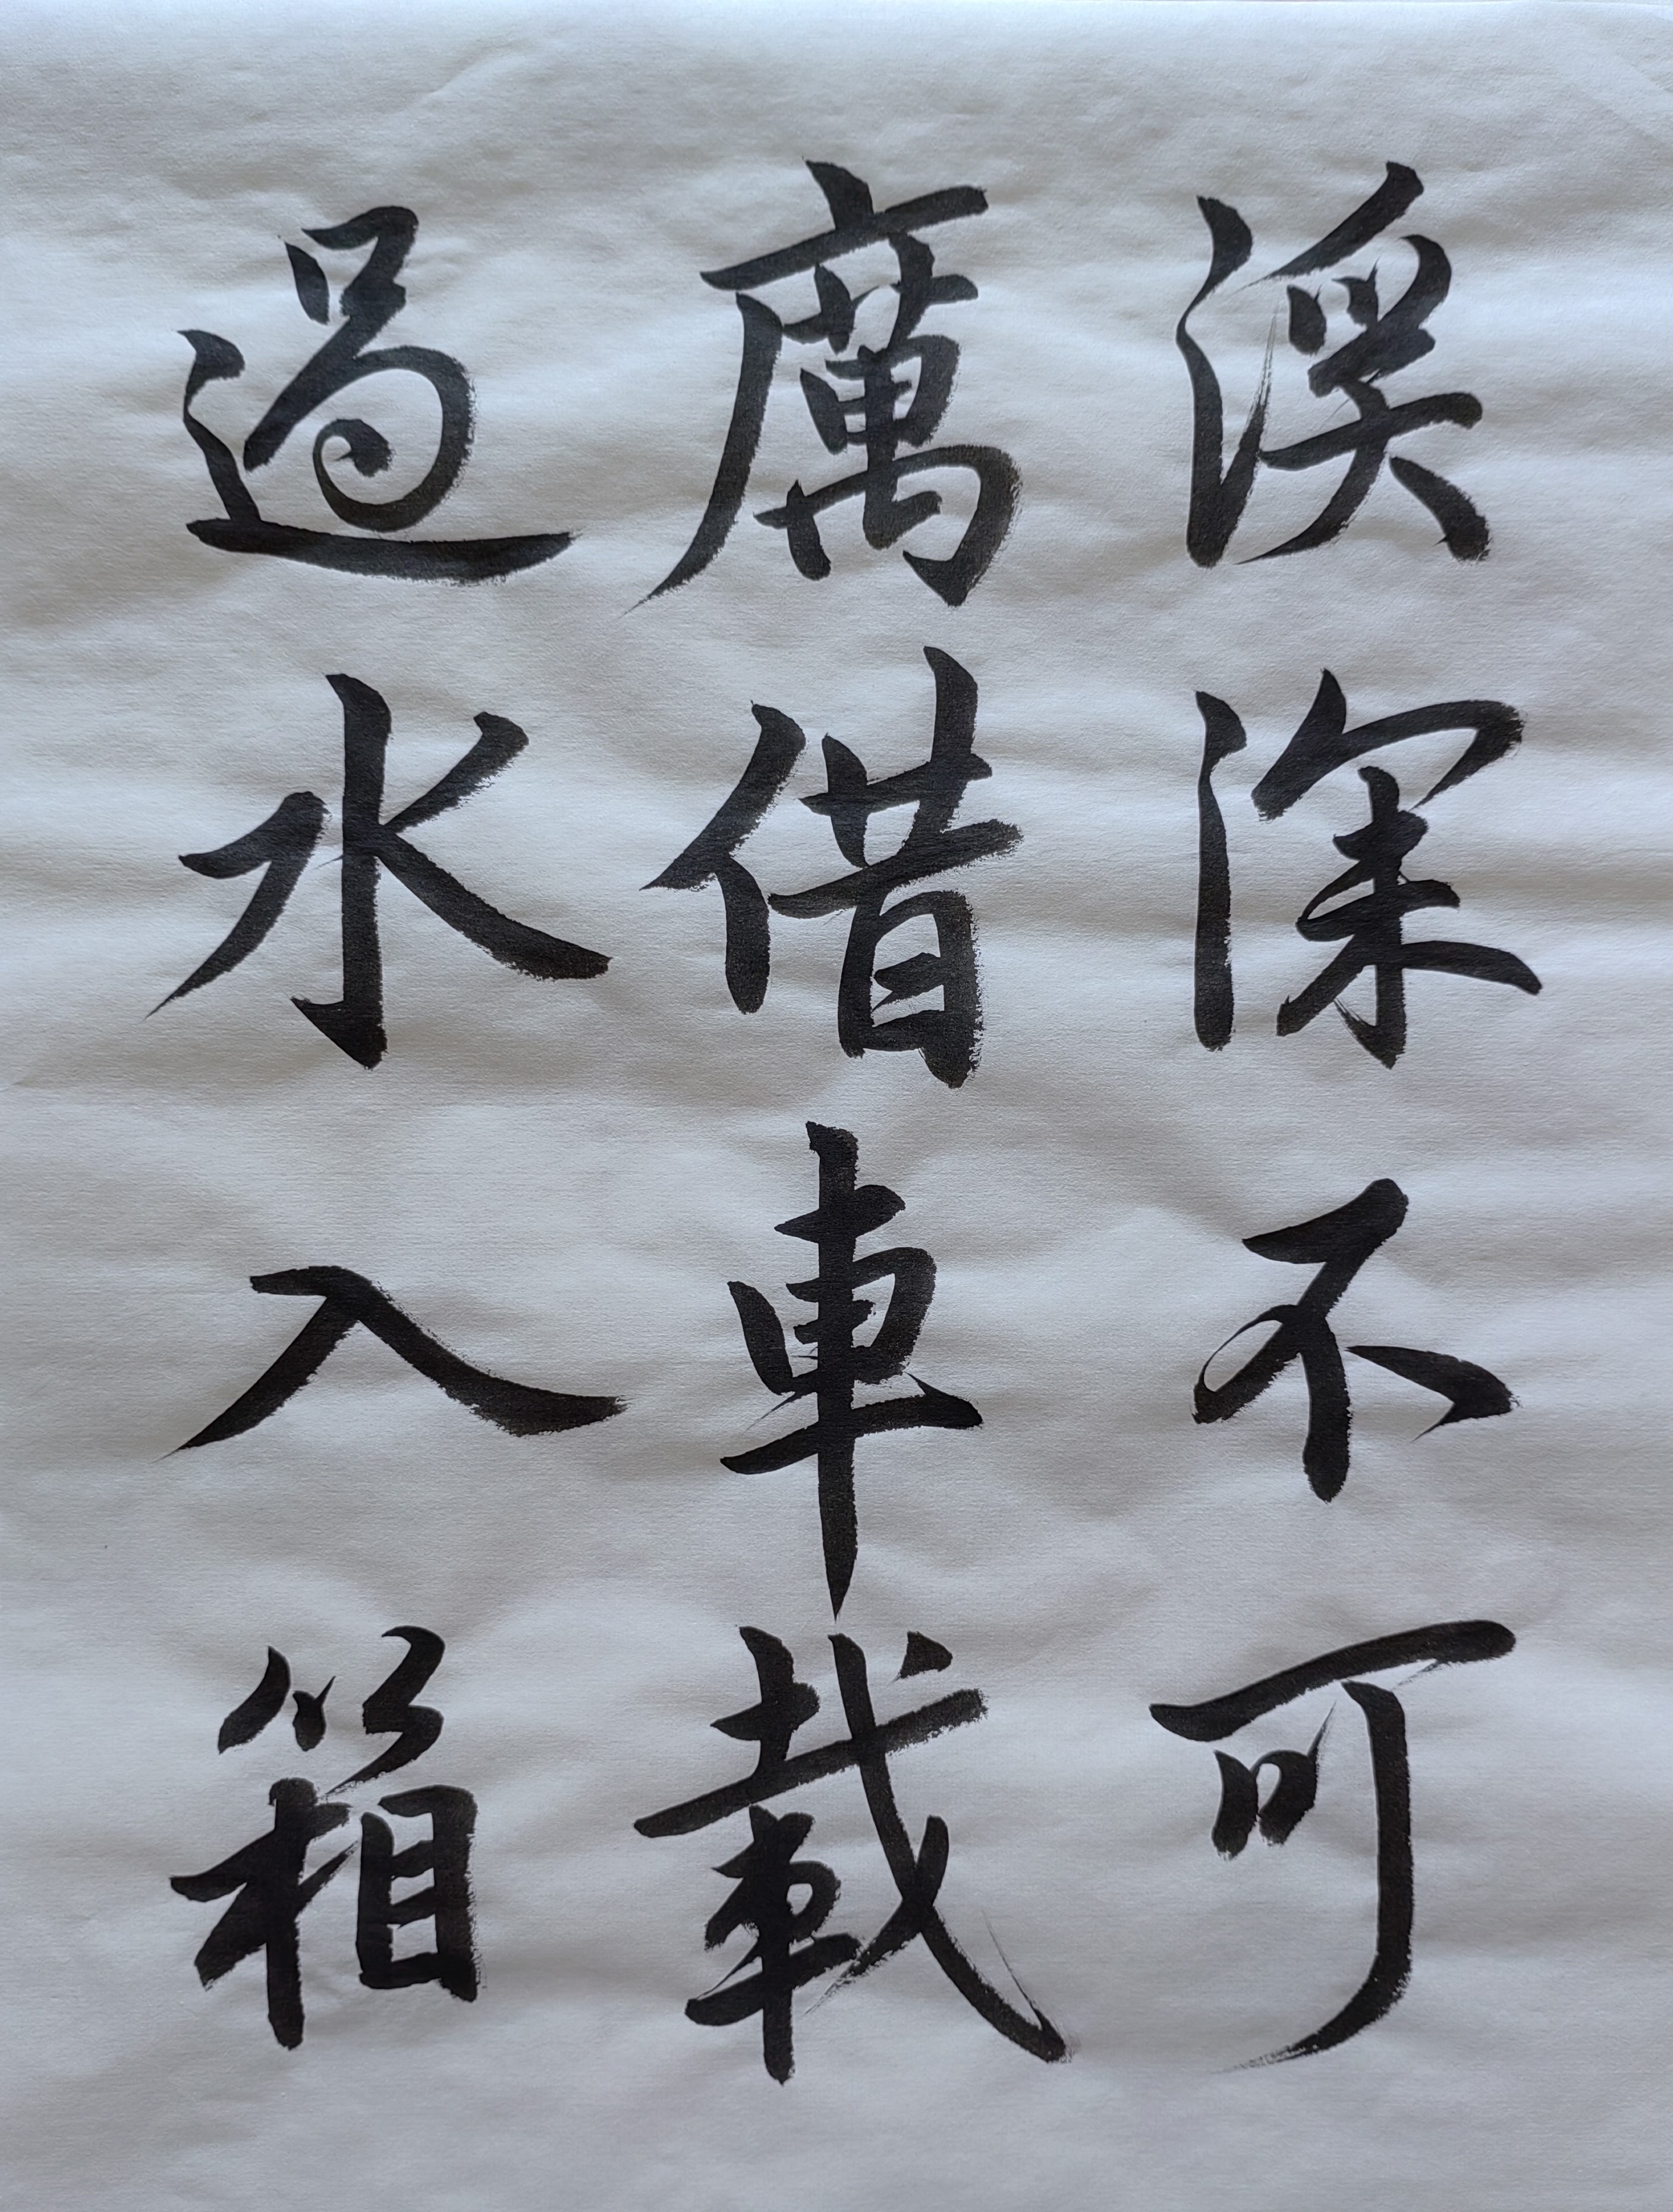 溪深不可
厲借車載
過水入箱